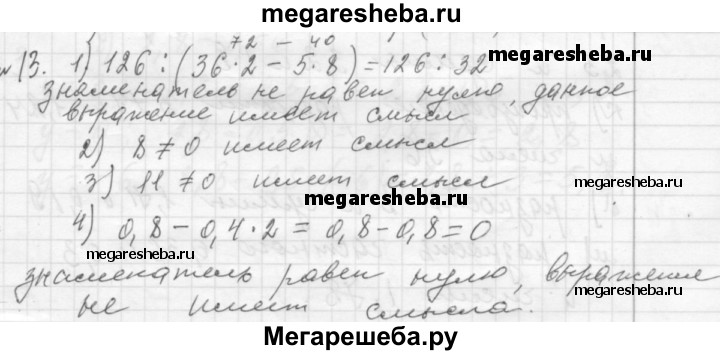 megaresheba.ru
72 - 40
№13. 1) 126 : (36·2 - 5·8) = 126 : 32
megaresheba.ru
знаменатель не равен нулю, данное
выражение имеет смысл
2) 8 ≠ 0 имеет смысл
megaresheba.ru
3) 11 ≠ 0 имеет смысл
megaresheba.ru
4) 0,8 - 0,4·2 = 0,8 - 0,8 = 0
megaresheba.ru
знаменатель равен нулю, выражение
megaresheba.ru
не имеет смысла.
Мегарешеба.ру